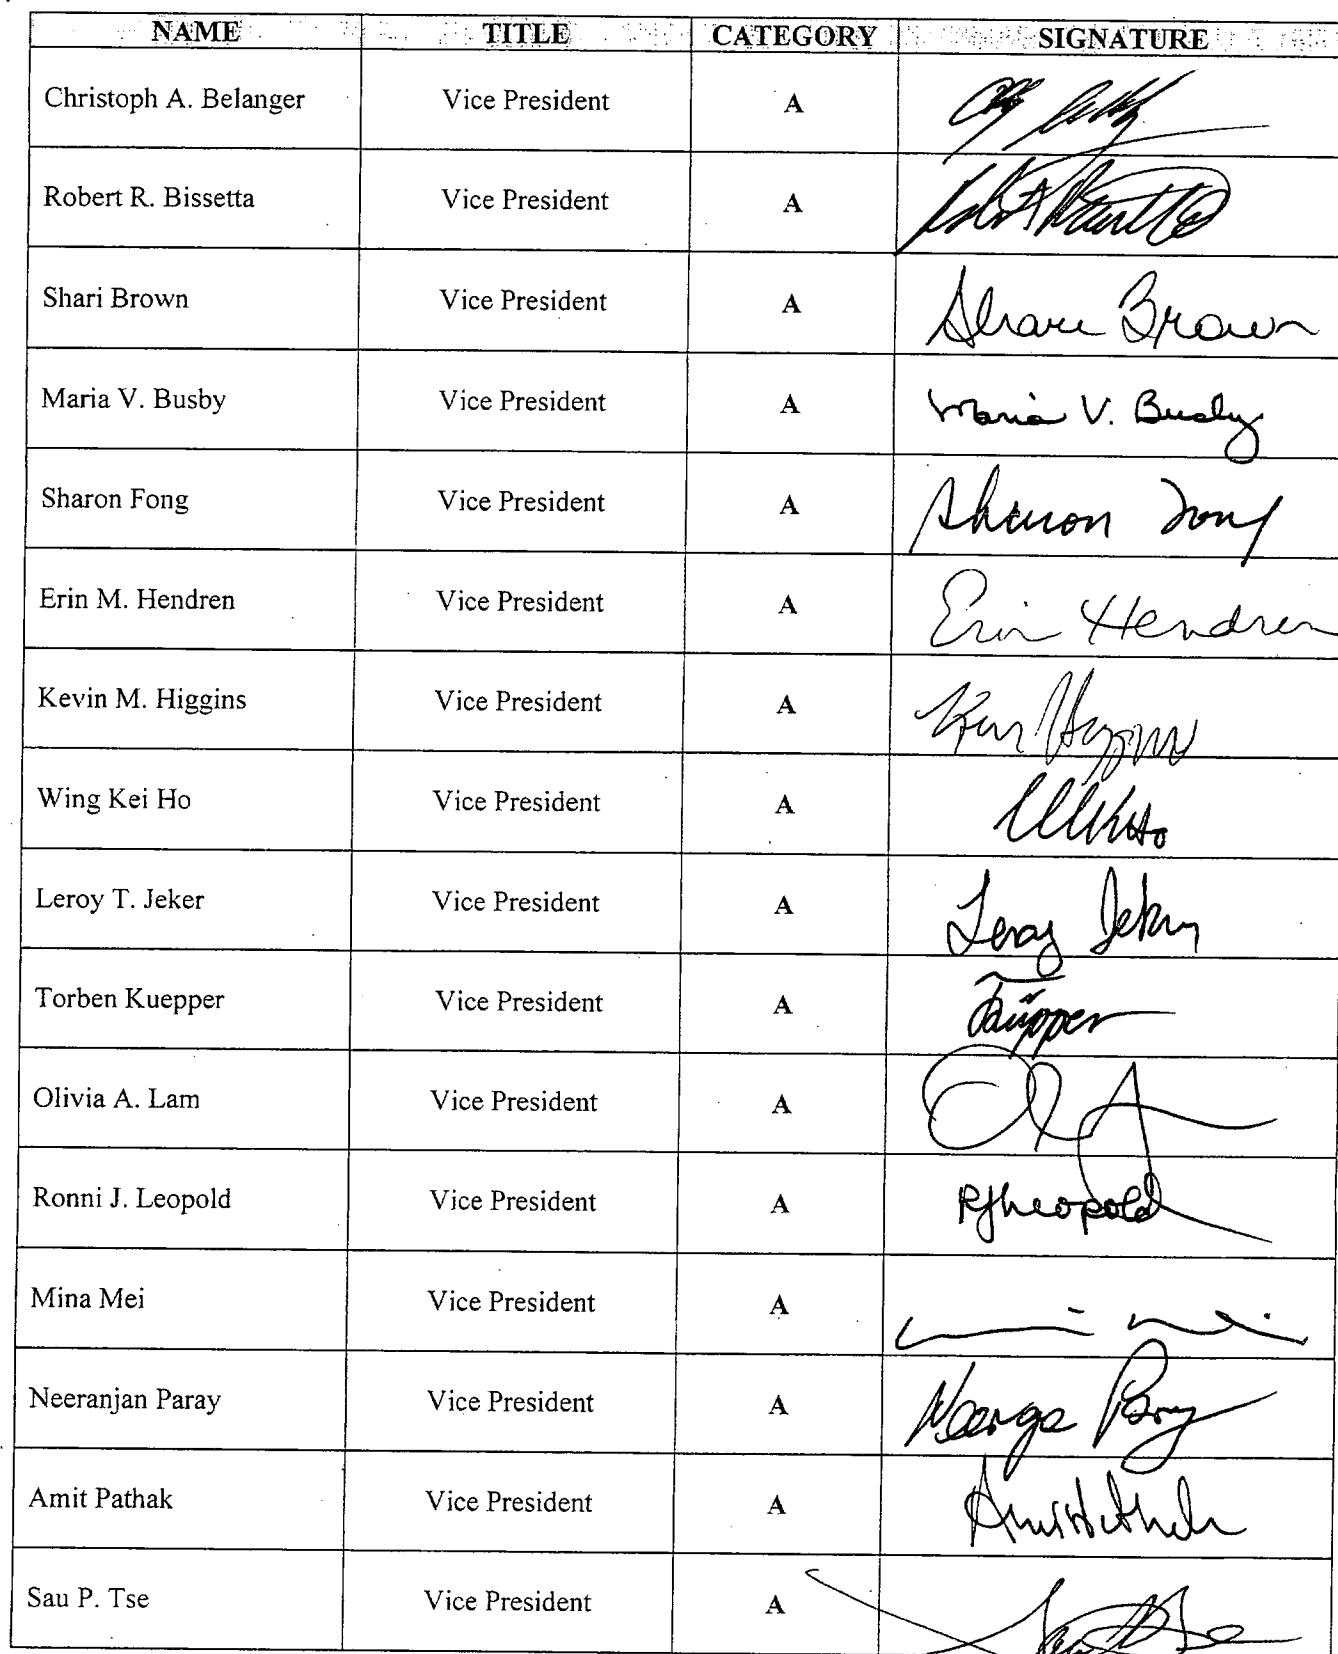 NAME TITLE CATEGORY SIGNATURE
Christoph A. Belanger Vice President A
Robert R. Bissetta Vice President A
Shari Brown Vice President A Shari Brown
Maria V. Busby Vice President A Maria V. Busby
Sharon Fong Vice President A Sharon Fong
Erin M. Hendren Vice President A Erin Hendren
Kevin M. Higgins Vice President A
Wing Kei Ho Vice President A
Leroy T. Jeker Vice President A Leroy Jeker
Torben Kuepper Vice President A
Olivia A. Lam Vice President A
Ronni J. Leopold Vice President A RJLeopold
Mina Mei Vice President A
Neeranjan Paray Vice President A
Amit Pathak Vice President A
Sau P. Tse Vice President A